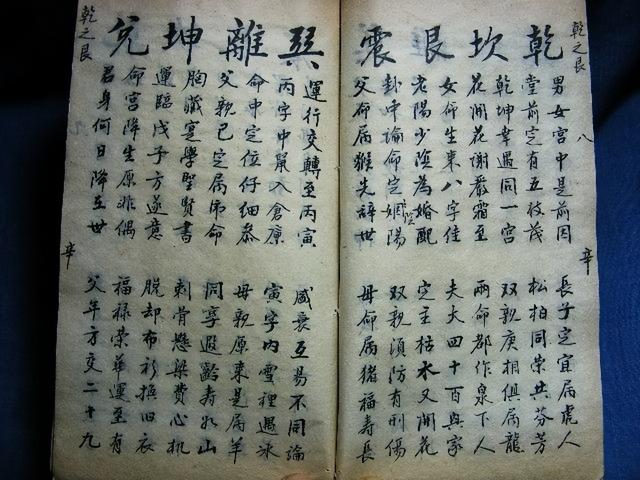 乾之艮
乾坎艮震
男女宮中是前因
長子定宜屬虎人
堂前定有五枝茂
松柏同榮共芬芳
乾坤幸遇同一宮
双親庚相俱屬龍
花開花謝嚴霜至
兩命都作泉下人
女命生來八字佳
夫大四十百與家
老陽少陰為婚配
定主枯木又開花
卦中論命定陰陽
双親須防有刑傷
父命屬猴先辭世
母命屬猪福壽長
八
辛
巽離坤兌
運行交轉至丙寅
盛衰互易不同論
丙字中鼠入倉廪
寅字內雪裡遇冰
命中定位仔細叅
母親原來是屬羊
父親已定屬
命
同享遐齡寿如山
胸藏寔學聖賢書
刺骨懸梁費心机
運臨戊子方遂意
脱却布衫換旧衣
命宮降生原非偶
福禄荣華運至有
君身何日降在世
父年方交二十九
乾之艮
辛